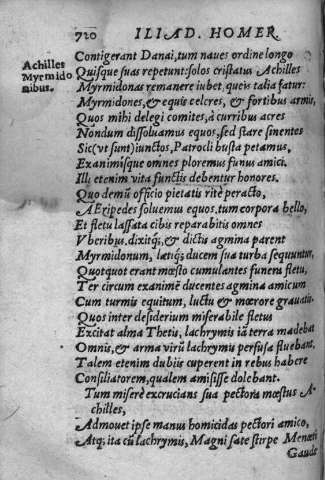 720 ILIAD. HOMER.
Contigerant Danai, tum naues ordine longo
Achilles
Quisque suas repetunt: solos cristatus Achilles
Myrmido
Myrmidonas remanere iubet, queis talia fatur:
nibus.
Myrmidones, & equis celeres, & fortibus armis,
Quos mihi delegi comites, à curribus acres
Nondum dissoluamus equos, sed stare sinentes
Sic (vt sunt) iunctos, Patrocli busta petamus,
Exanimisque omnes ploremus funus amici.
Illi etenim vita functis debentur honores.
Quo demũ officio pietatis ritè peracto,
AEripedes soluemus equos, tum corpora bello,
Et fletu lassata cibis reparabitis omnes
Vberibus. dixitq;, & dictis agmina parent
Myrmidonum, lætiq; ducem sua turba sequuntur,
Quotquot erant mœsto cumulantes funera fletu,
Ter circum exanimẽ ducentes agmina amicum
Cum turmis equitum, luctu & mœrore grauatis.
Quos inter desiderium miserabile fletus
Excitat alma Thetis, lachrymis iã terra madebat
Omnis, & arma virũ lachrymis perfusa fluebant,
Talem etenim dubiis cuperent in rebus habere
Consiliatorem, qualem amisisse dolebant.
Tum miserè excrucians sua pectora mœstus A-
chilles,
Admouet ipse manus homicidas pectori amico,
Atq; ita cũ lachrymis, Magni sate stirpe Menœti
Gaude